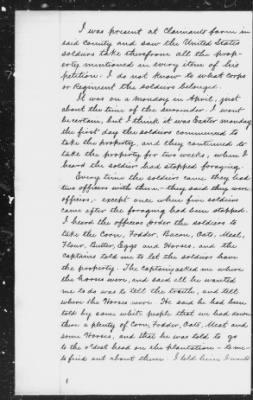 I was present at Claimants farm in
said County and saw the United States
soldiers take therefrom all the prop-
erty mentioned in every item of his
petition. I do not know to what corps
or Regiment the soldiers belonged.
It was on a Monday in April, just
about the time of the surrender. I wont
be certain, but I think it was Easter monday
the first day the soldiers commenced to
take the property, and they continued to
take the property for two weeks, when I
heard the soldier had stopped foraging.
Every time the soldiers came they had
two officers with them - they said they were
officers, - except once when five soldiers
came after the foraging had been stopped.
I heard the officers order the soldiers to
take the Corn, Fodder, Bacon, Oats, Meal,
Flour, Butter, Eggs and Horses, and the
captains told me to let the soldiers have
the property. The Captain asked me where
the horses were, and said all he wanted
me to do was to tell the truth, and tell
where the Horses were. He said he had been
told by some white people that we had down
there a plenty of Corn, Fodder, Oats, Meat and
some Horses, and that he was told to go
to the oldest head on the plantation - to me -
to find out about them. I told him I would